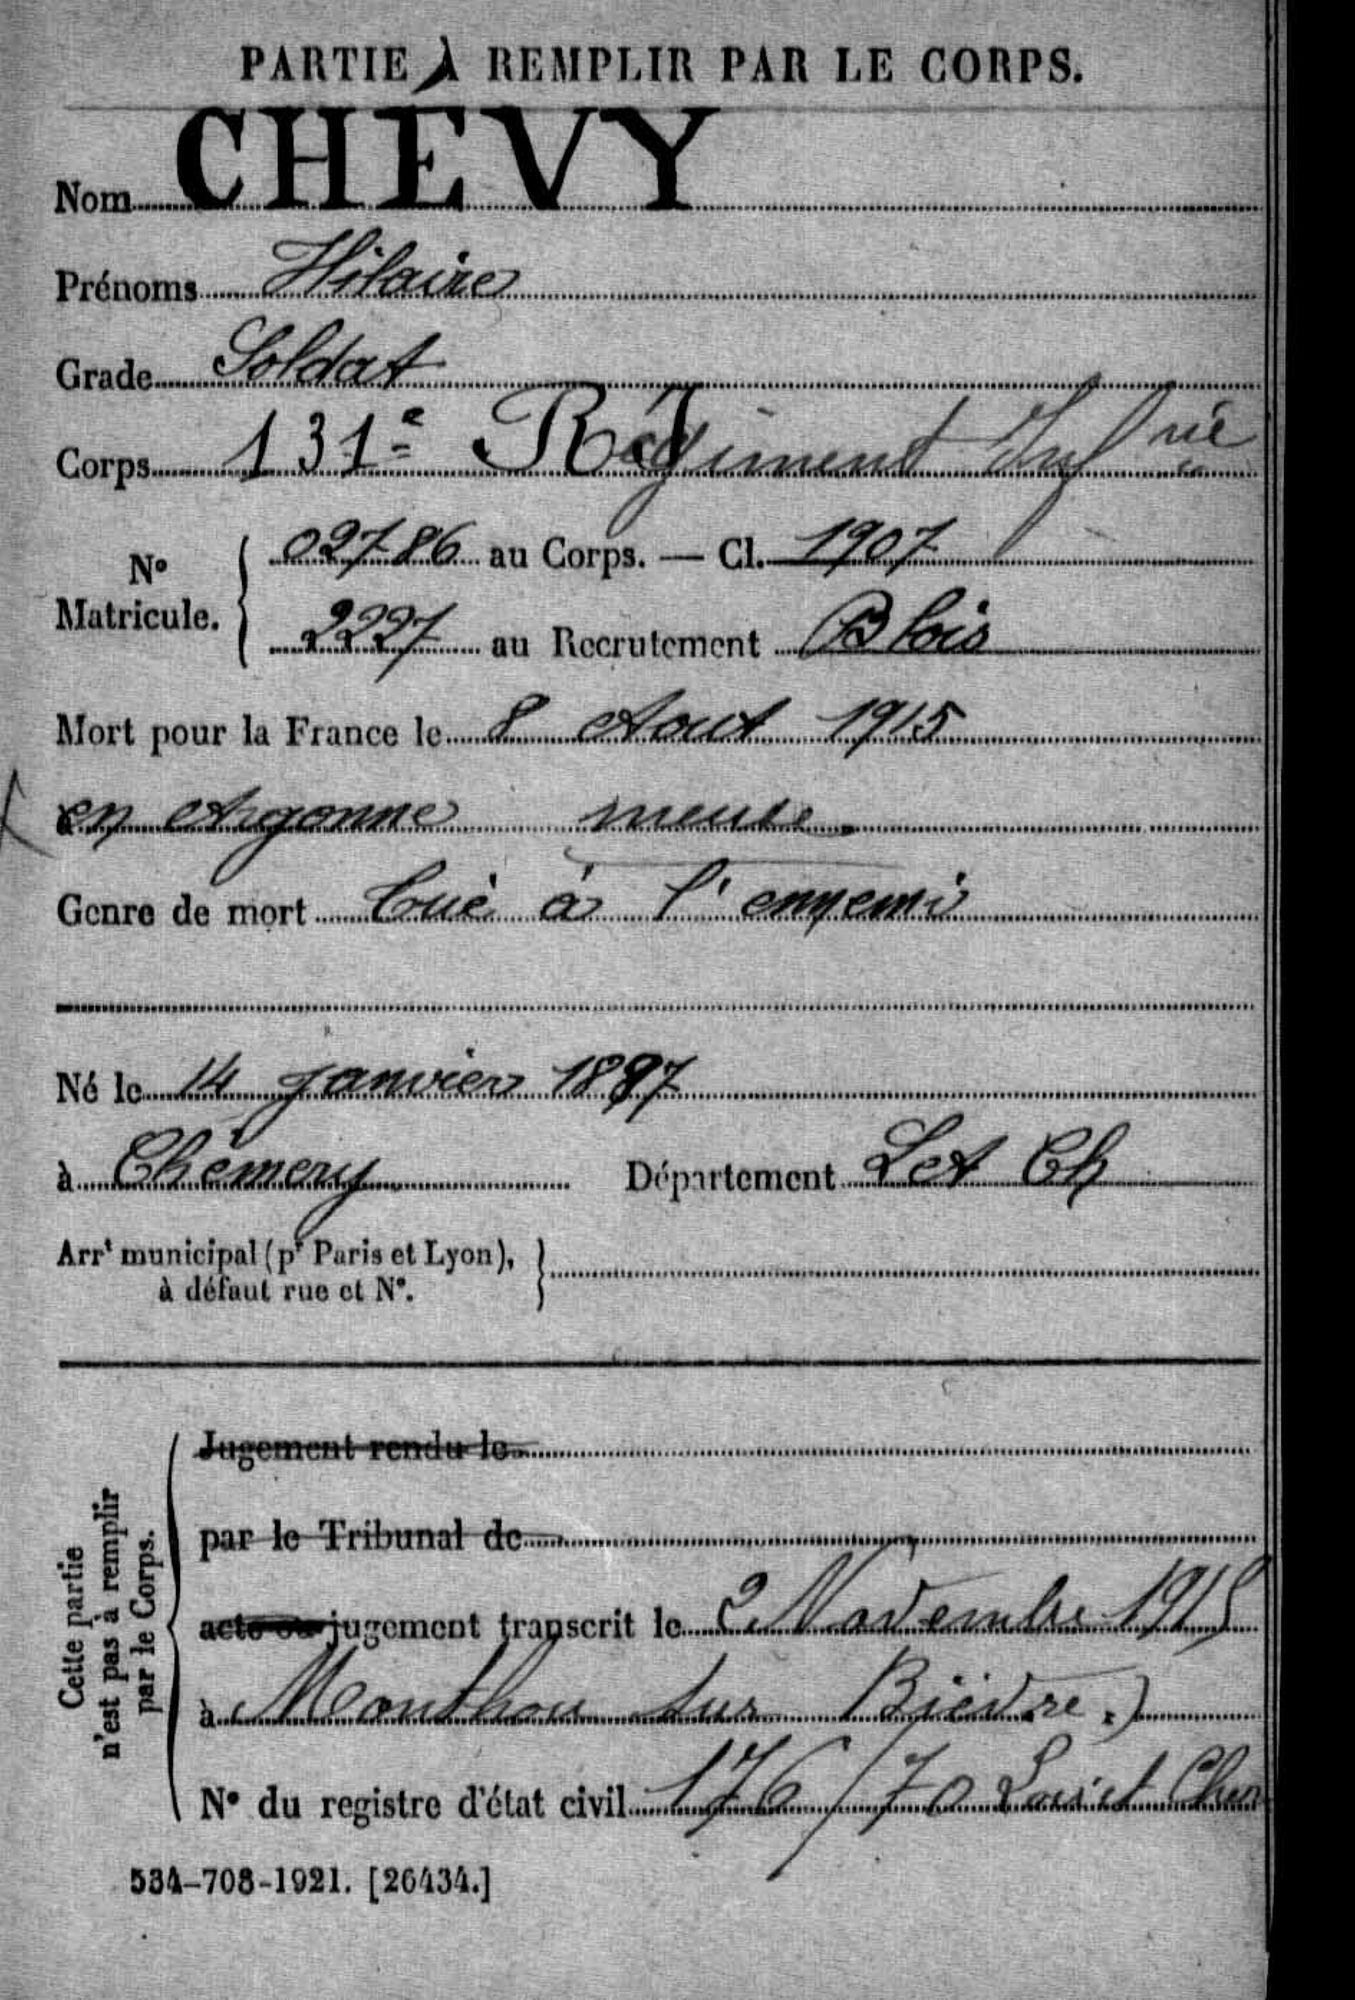 PARTIE À REMPLIR PAR LE CORPS.
Nom CHÉVY
Prénoms Hilaire
Grade Soldat
Corps 131e Régiment Infrie
No Matricule. { 02786 au Corps. — Cl. 1907
2227 au Recrutement Blois
Mort pour la France le 8 Aout 1915
en Argonne meuse.
Genre de mort Tué à l'ennemi
Né le 14 Janvier 1887
à Chémery Département L et Ch
Arrt municipal (pr Paris et Lyon),
à défaut rue et No.
Cette partie
n'est pas à remplir
par le Corps.
Jugement rendu le
par le Tribunal de
acte ou jugement transcrit le 2 Novembre 1915
à Monthou sur Bièvre.)
No du registre d'état civil 176/70 Loir et Cher
534-708-1921. [26434.]